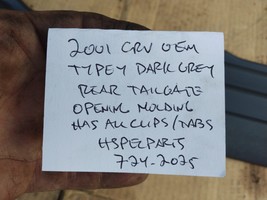 2001 CRV OEM
TYPEY DARK GREY
REAR TAILGATE
OPENING MOLDING
HAS ALL CLIPS/TABS
HSPECPARTS
724-2025